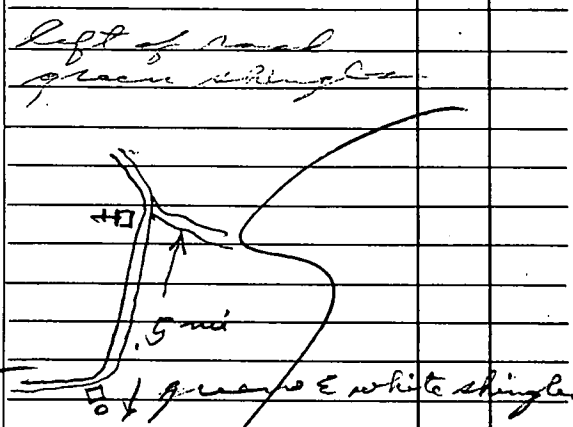 left of road
green shingles
.5 mi
green & white shingles